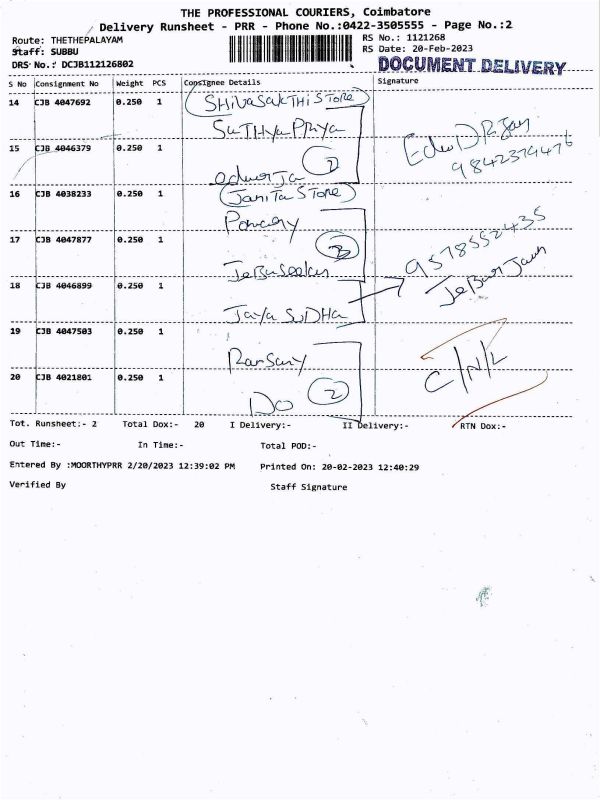 THE PROFESSIONAL COURIERS, Coimbatore
Delivery Runsheet - PRR - Phone No.:0422-3505555 - Page No.:2
Route: THETHEPALAYAM
RS No.: 1121268
Staff: SUBBU
RS Date: 20-Feb-2023
DRS No.: DCJB112126802
DOCUMENT DELIVERY
S No Consignment No Weight PCS Consignee Details Signature
14 CJB 4047692 0.250 1 SHivaSakTHi STORE
SaTHya PRiya
15 CJB 4046379 0.250 1
2
9842379476
16 CJB 4038233 0.250 1 JaniTa STORE
17 CJB 4047877 0.250 1
3
9578552435
18 CJB 4046899 0.250 1
Jaya SuDHa
19 CJB 4047503 0.250 1
C/N/L
20 CJB 4021801 0.250 1
Do 2
Tot. Runsheet:- 2 Total Dox:- 20 I Delivery:- II Delivery:- RTN Dox:-
Out Time:- In Time:- Total POD:-
Entered By :MOORTHYPRR 2/20/2023 12:39:02 PM Printed On: 20-02-2023 12:40:29
Verified By Staff Signature